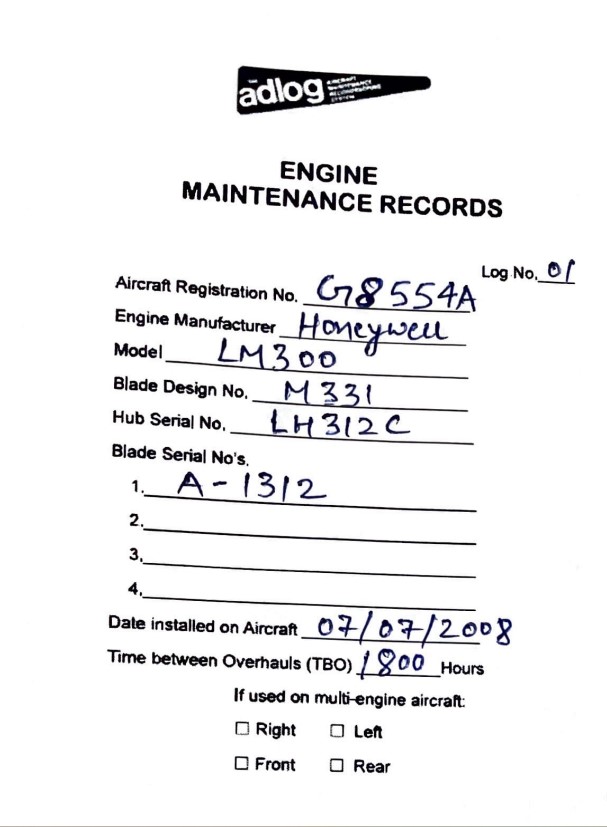 THE
adlog AIRCRAFT
MAINTENANCE
RECORDKEEPING
SYSTEM
ENGINE
MAINTENANCE RECORDS
Log No. 01
Aircraft Registration No. G8554A
Engine Manufacturer Honeywell
Model LM300
Blade Design No. M331
Hub Serial No. LH312C
Blade Serial No's.
1. A-1312
2.
3.
4.
Date installed on Aircraft 07/07/2008
Time between Overhauls (TBO) 1800 Hours
If used on multi-engine aircraft:
☐ Right ☐ Left
☐ Front ☐ Rear